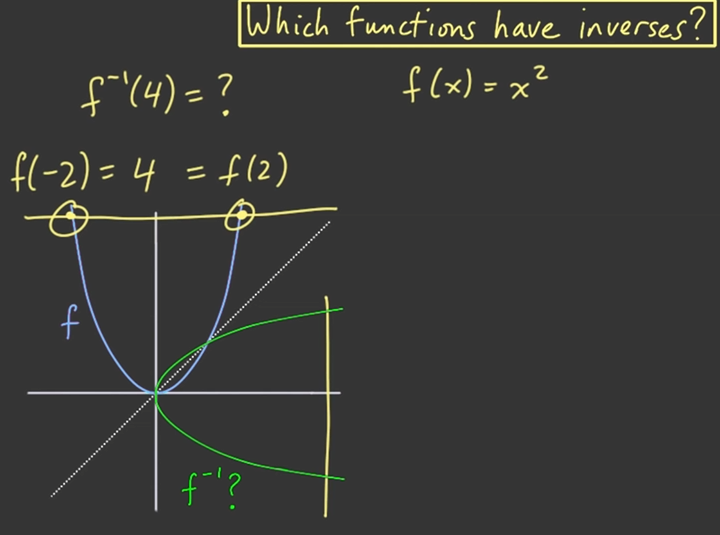 Which functions have inverses?
f⁻¹(4) = ?
f(x) = x²
f(-2) = 4 = f(2)
f
f⁻¹?